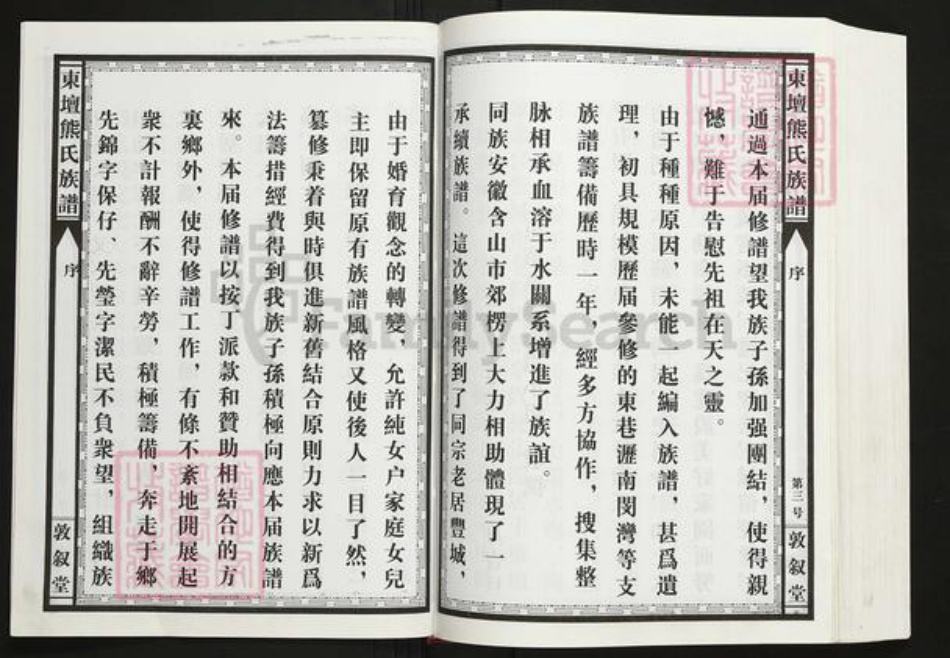 東壇熊氏族譜
序
第三号
敦叙堂
通過本届修譜望我族子孫加强團結，使得親
憾，難于告慰先祖在天之靈。
由于種種原因，未能一起編入族譜，甚爲遺
理，初具規模歷届參修的東巷瀝南閔灣等支
族譜籌備歷時一年，經多方協作，搜集整
脉相承血溶于水關系增進了族誼。
同族安徽含山市郊楞上大力相助體現了一
承續族譜。這次修譜得到了同宗老居豐城，
由于婚育觀念的轉變，允許純女户家庭女兒
主即保留原有族譜風格又使後人一目了然，
篡修秉着與時俱進新舊結合原則力求以新爲
法籌措經費得到我族子孫積極向應本届族譜
來。本届修譜以按丁派款和贊助相結合的方
裏鄉外，使得修譜工作，有條不紊地開展起
衆不計報酬不辭辛勞，積極籌備，奔走于鄉
先錦字保仔、先瑩字潔民不負衆望，組織族
東壇熊氏族譜
序
敦叙堂
FamilySearch